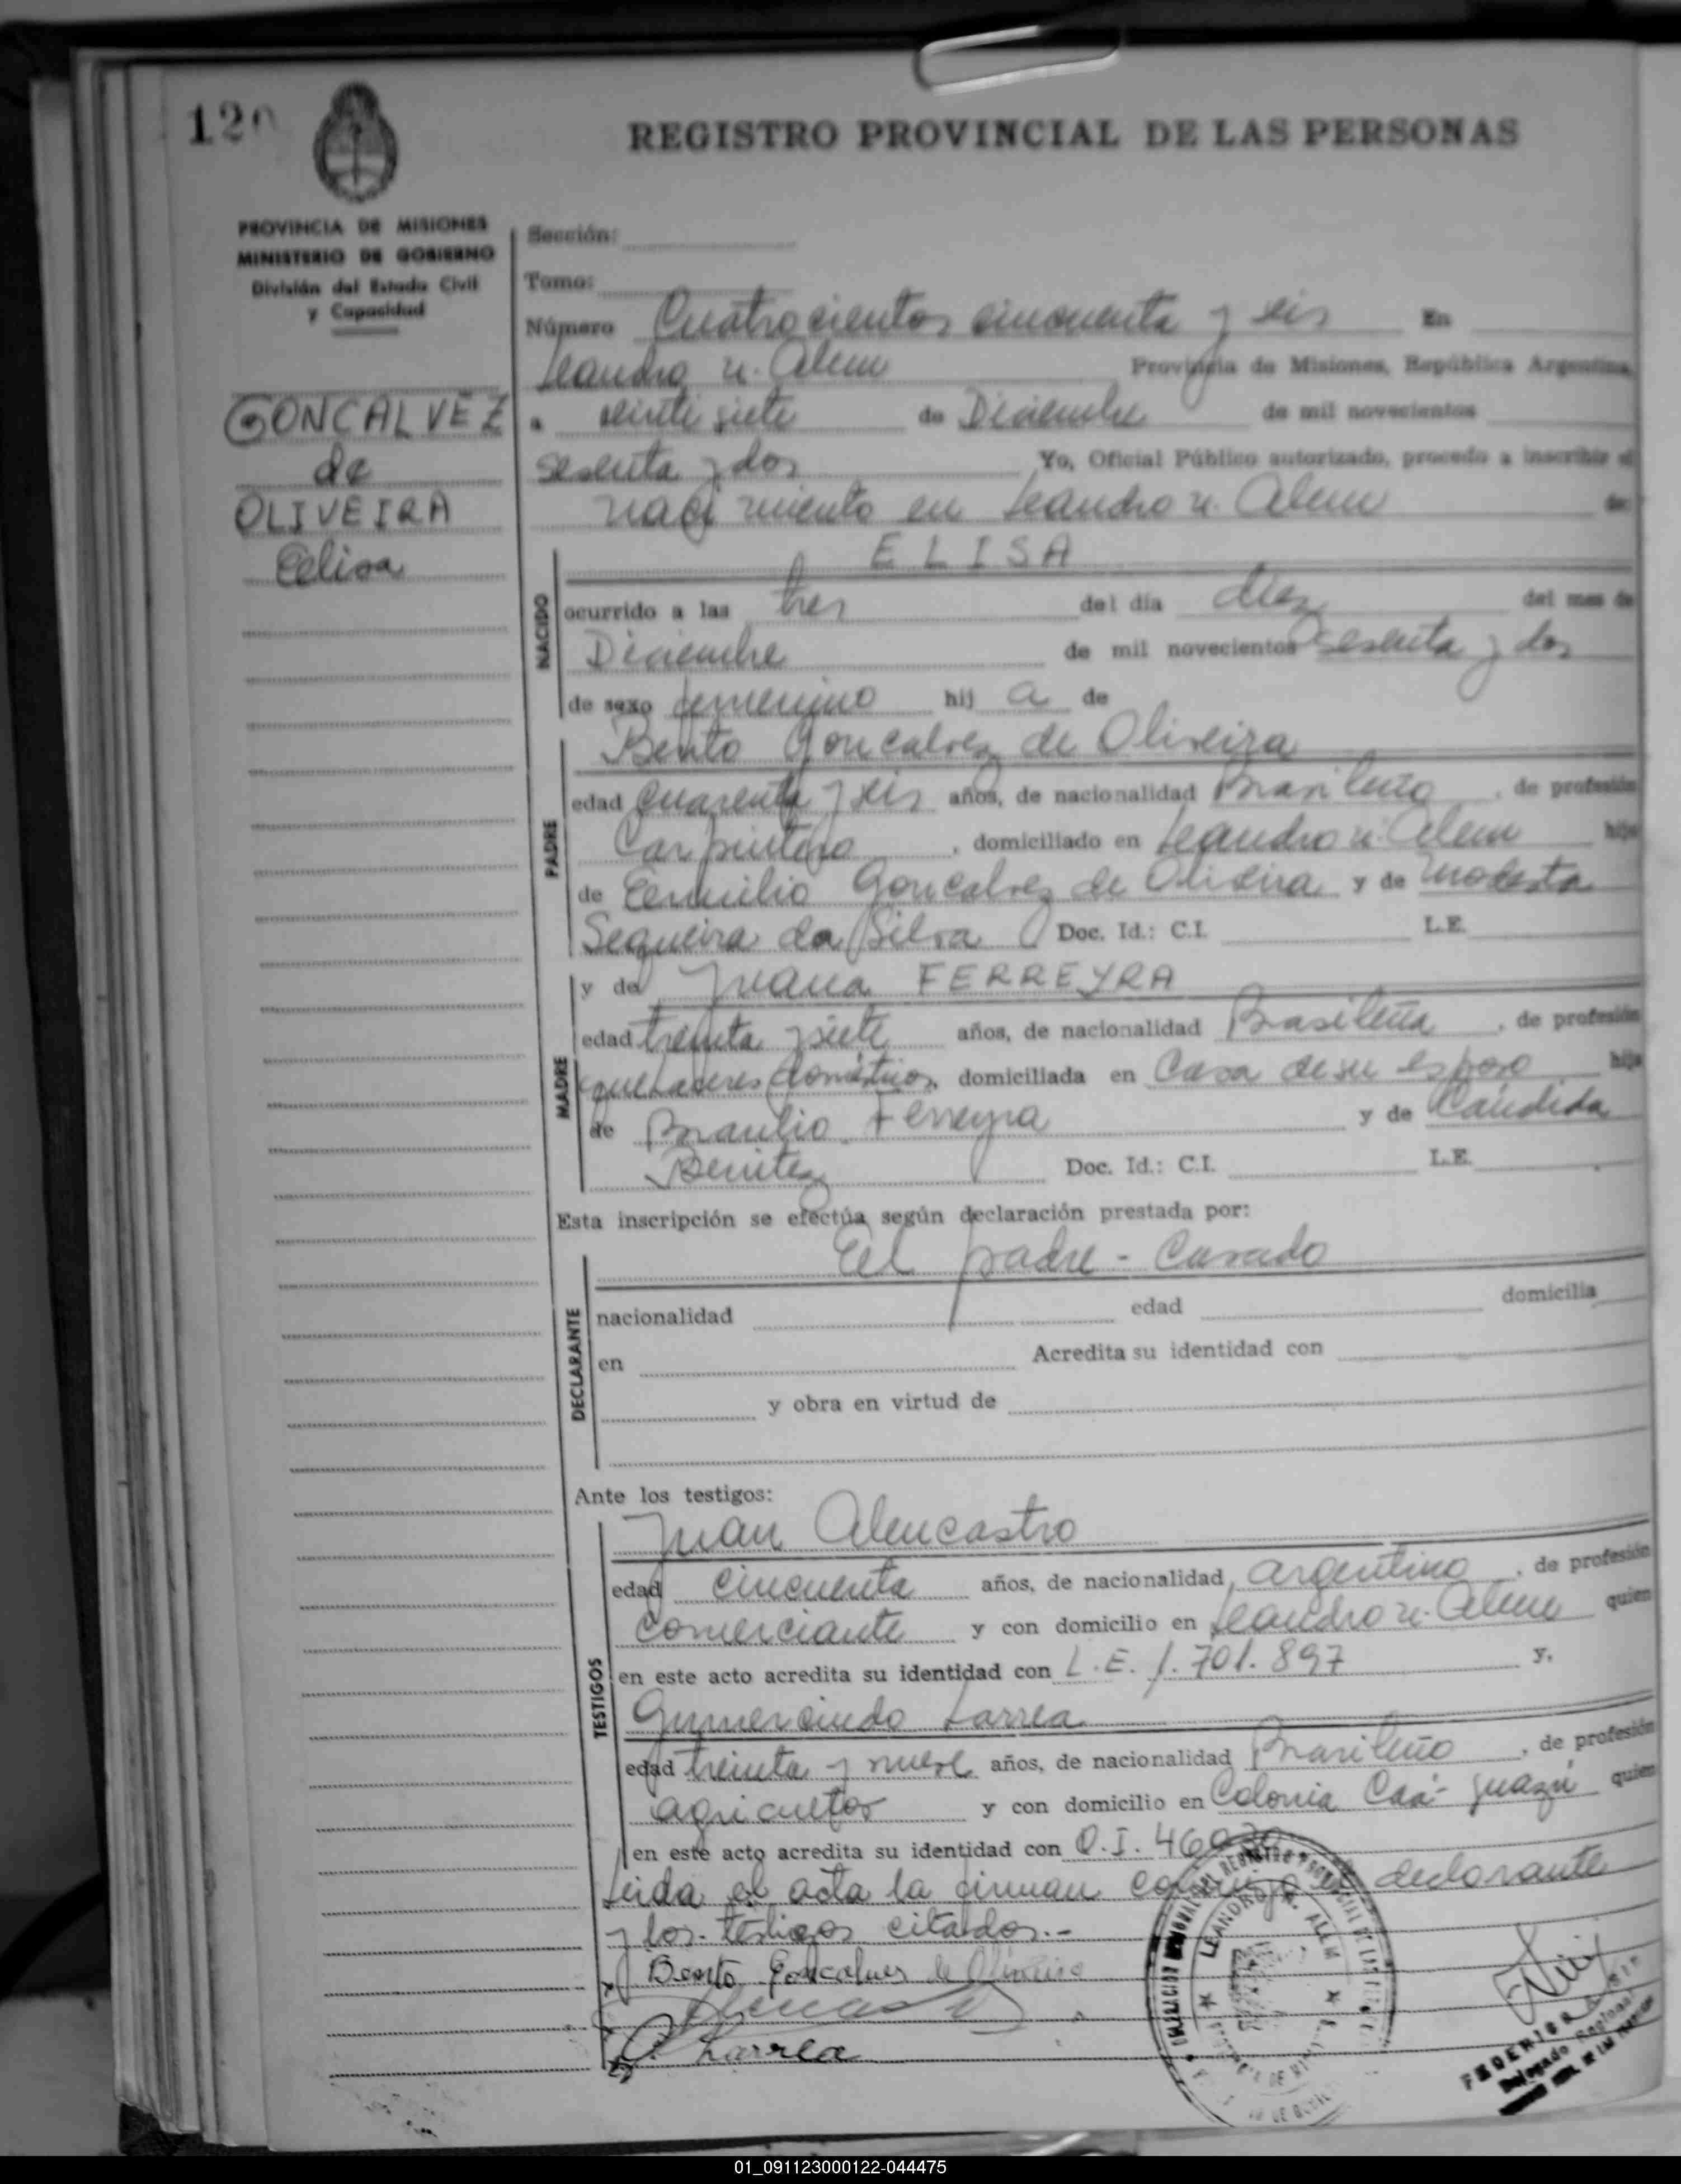 120
REGISTRO PROVINCIAL DE LAS PERSONAS
PROVINCIA DE MISIONES
MINISTERIO DE GOBIERNO
División del Estado Civil
y Capacidad
GONCALVEZ
de
OLIVEIRA
Elisa
Sección:
Tomo:
Número Cuatrocientos cincuenta y seis En
Leandro N. Alem Provincia de Misiones, República Argentina,
a veinti siete de Diciembre de mil novecientos
sesenta y dos Yo, Oficial Público autorizado, procedo a inscribir el
naci miento en Leandro N. Alem de:
NACIDO
ELISA
ocurrido a las tres del día diez del mes de
Diciembre de mil novecientos sesenta y dos
de sexo femenino hij a de
PADRE
Bento Goncalvez de Oliveira
edad cuarenta y seis años, de nacionalidad Brasileño, de profesión
Carpintero, domiciliado en Leandro N. Alem hijo
de Emilio Goncalvez de Oliveira y de Modesta
Sequeira da Silva Doc. Id.: C.I. L.E.
MADRE
y de Juana FERREYRA
edad treinta y siete años, de nacionalidad Brasileña, de profesión
quehaceres domésticos, domiciliada en Casa de su esposo hija
de Braulio Ferreyra y de Cándida
Benitez Doc. Id.: C.I. L.E.
Esta inscripción se efectúa según declaración prestada por:
DECLARANTE
El padre - Casado
nacionalidad edad domicilia
en Acredita su identidad con
y obra en virtud de
Ante los testigos:
TESTIGOS
Juan Alencastro
edad cincuenta años, de nacionalidad argentino, de profesión
comerciante y con domicilio en Leandro N. Alem quien
en este acto acredita su identidad con L.E. 1.701.897 y,
Gumercindo Larrea
edad treinta y nueve años, de nacionalidad Brasileño, de profesión
agricultor y con domicilio en Colonia Caá-Guazú quien
en este acto acredita su identidad con C.I.
Leida el acta la firman conmigo el declarante
y los testigos citados.-
Bento Goncalves de Oliveira
Larrea
LEANDRO N. ALEM
FEDERICO
Delegado Regional
01_091123000122-044475